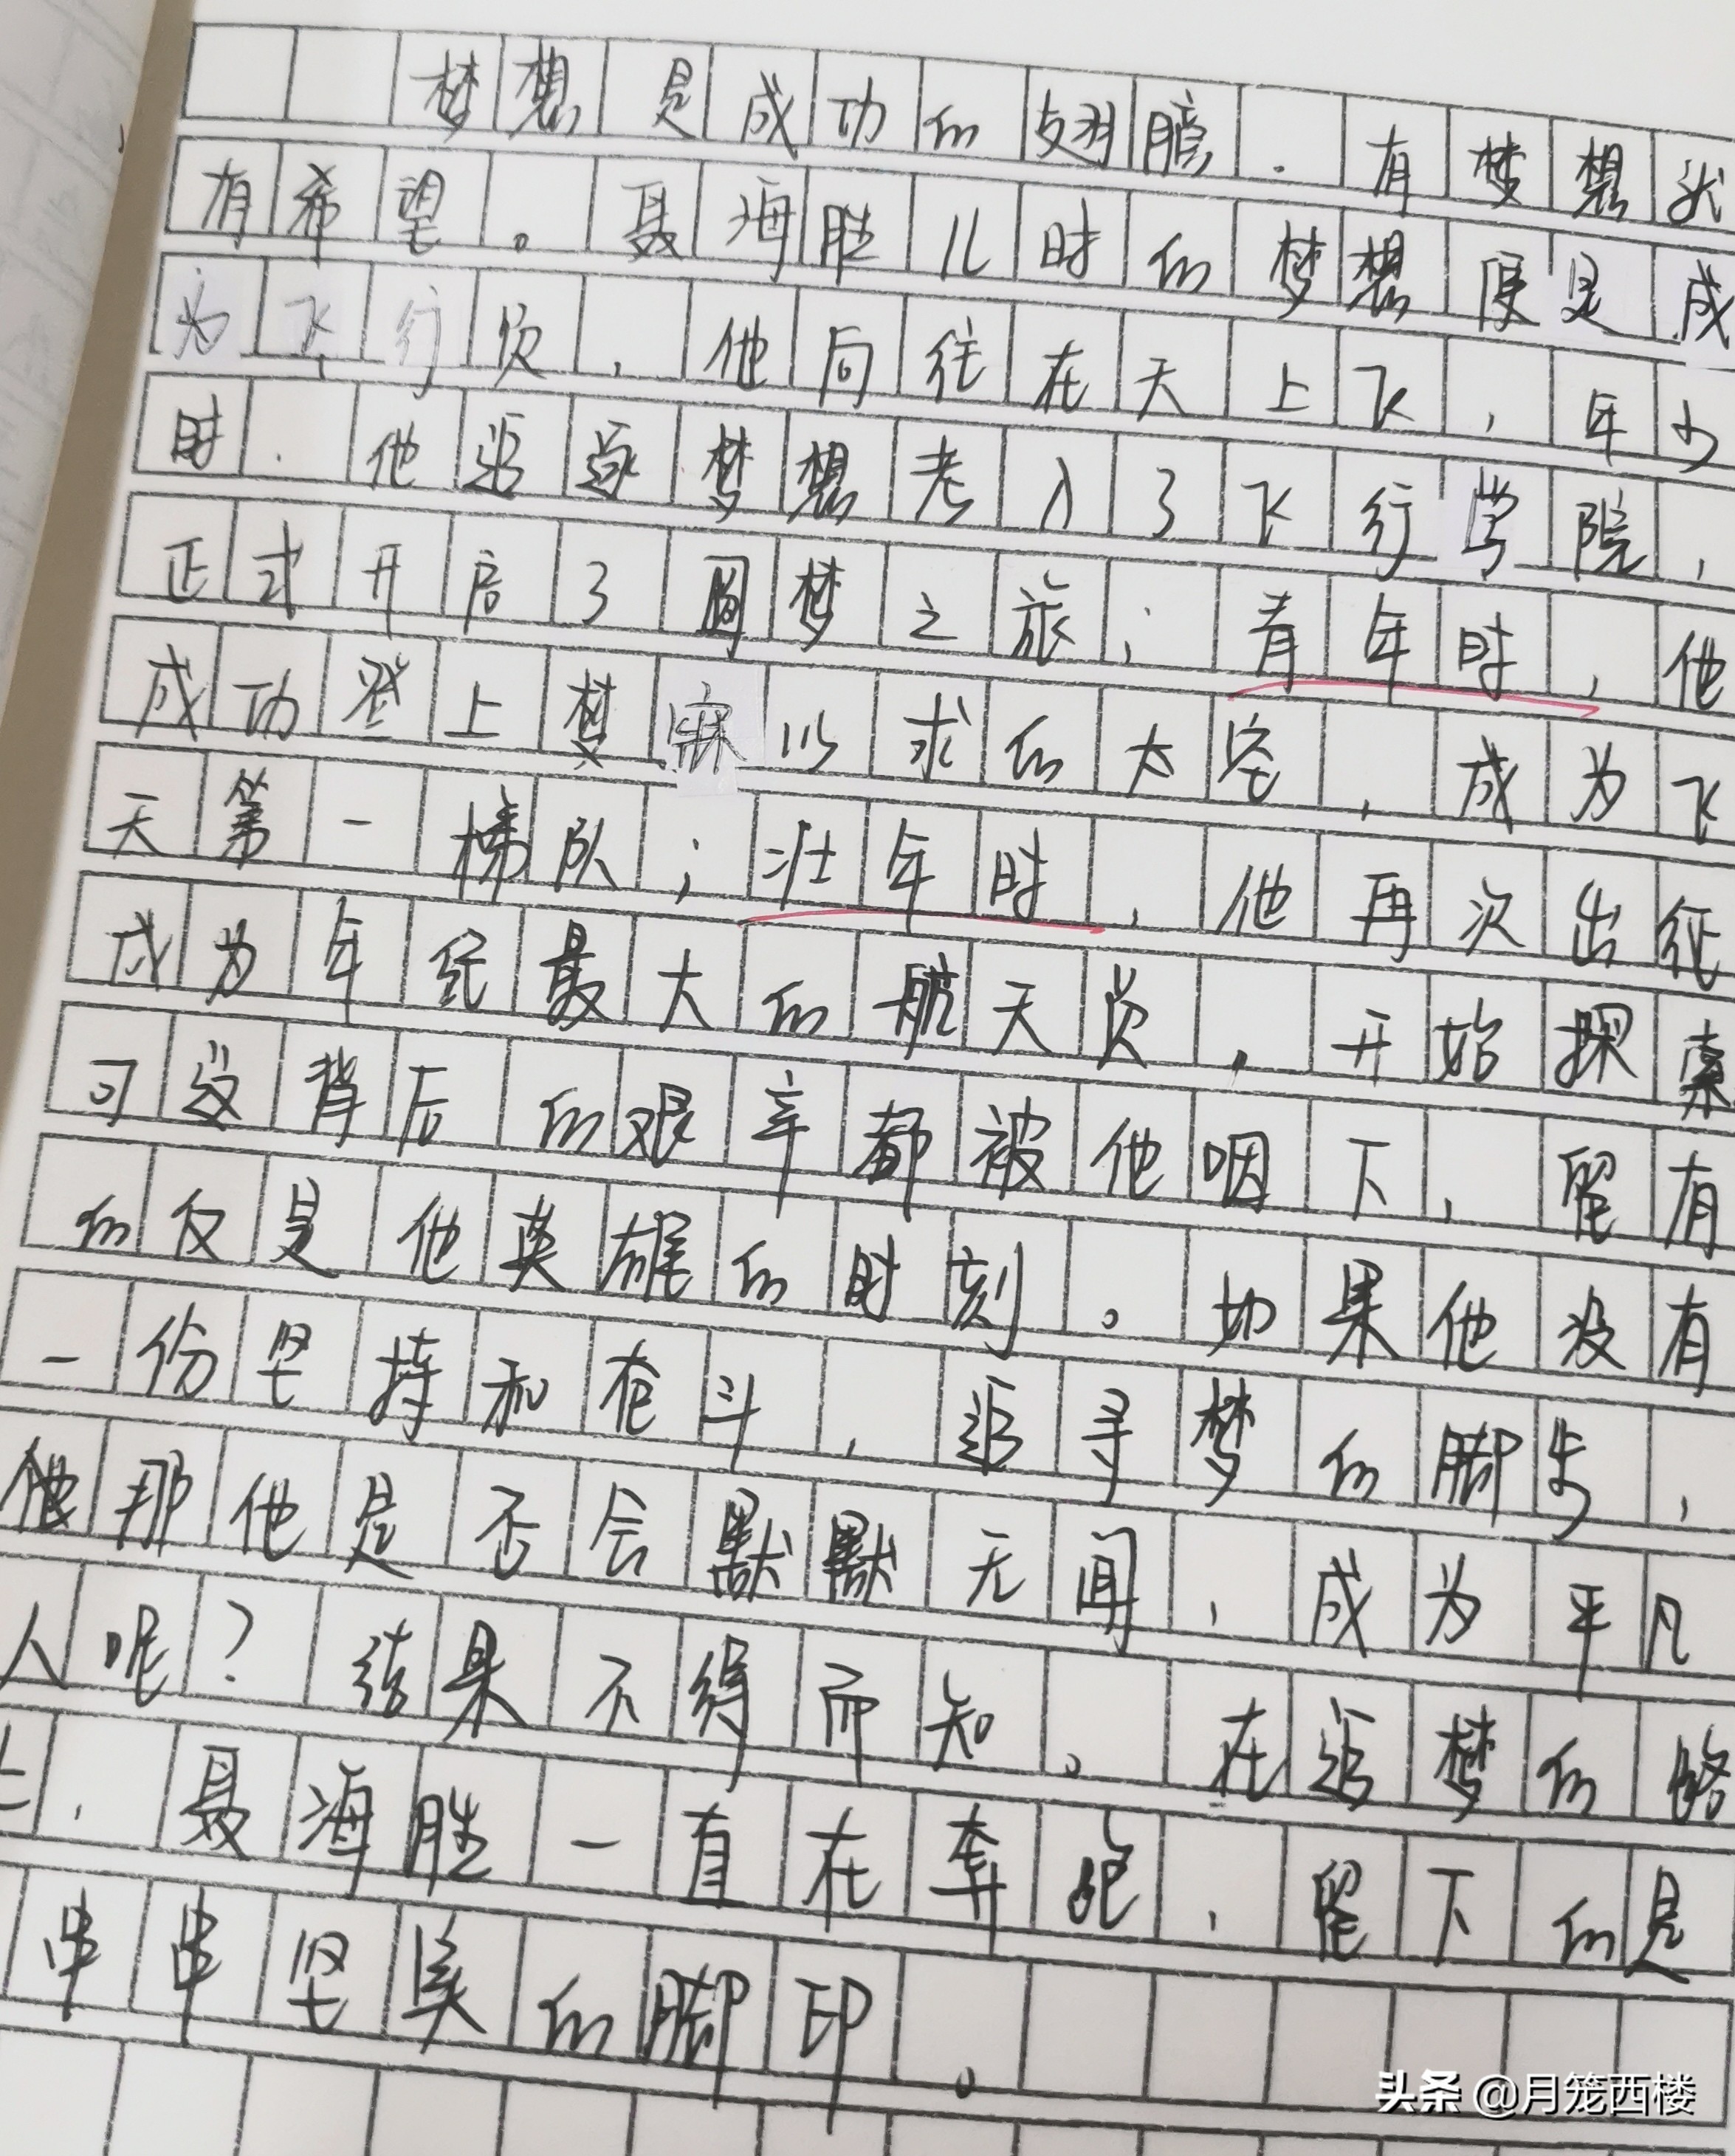 梦想是成功的翅膀.有梦想就
有希望。聂海胜儿时的梦想便是成
为飞行员,他向往在天上飞,年少
时.他追逐梦想考入了飞行学院,
正式开启了圆梦之旅;青年时,他
成功登上梦寐以求的太空,成为飞
天第一梯队;壮年时,他再次出征
成为年纪最大的航天员,开始探索
可这背后的艰辛都被他咽下,留有
的仅是他英雄的时刻。如果他没有
一份坚持和奋斗,追寻梦的脚步,
他那他是否会默默无闻,成为平凡
人呢?结果不得而知。在追梦的路
上,聂海胜一直在奔跑,留下的是
串串坚实的脚印。
头条 @月笼西楼